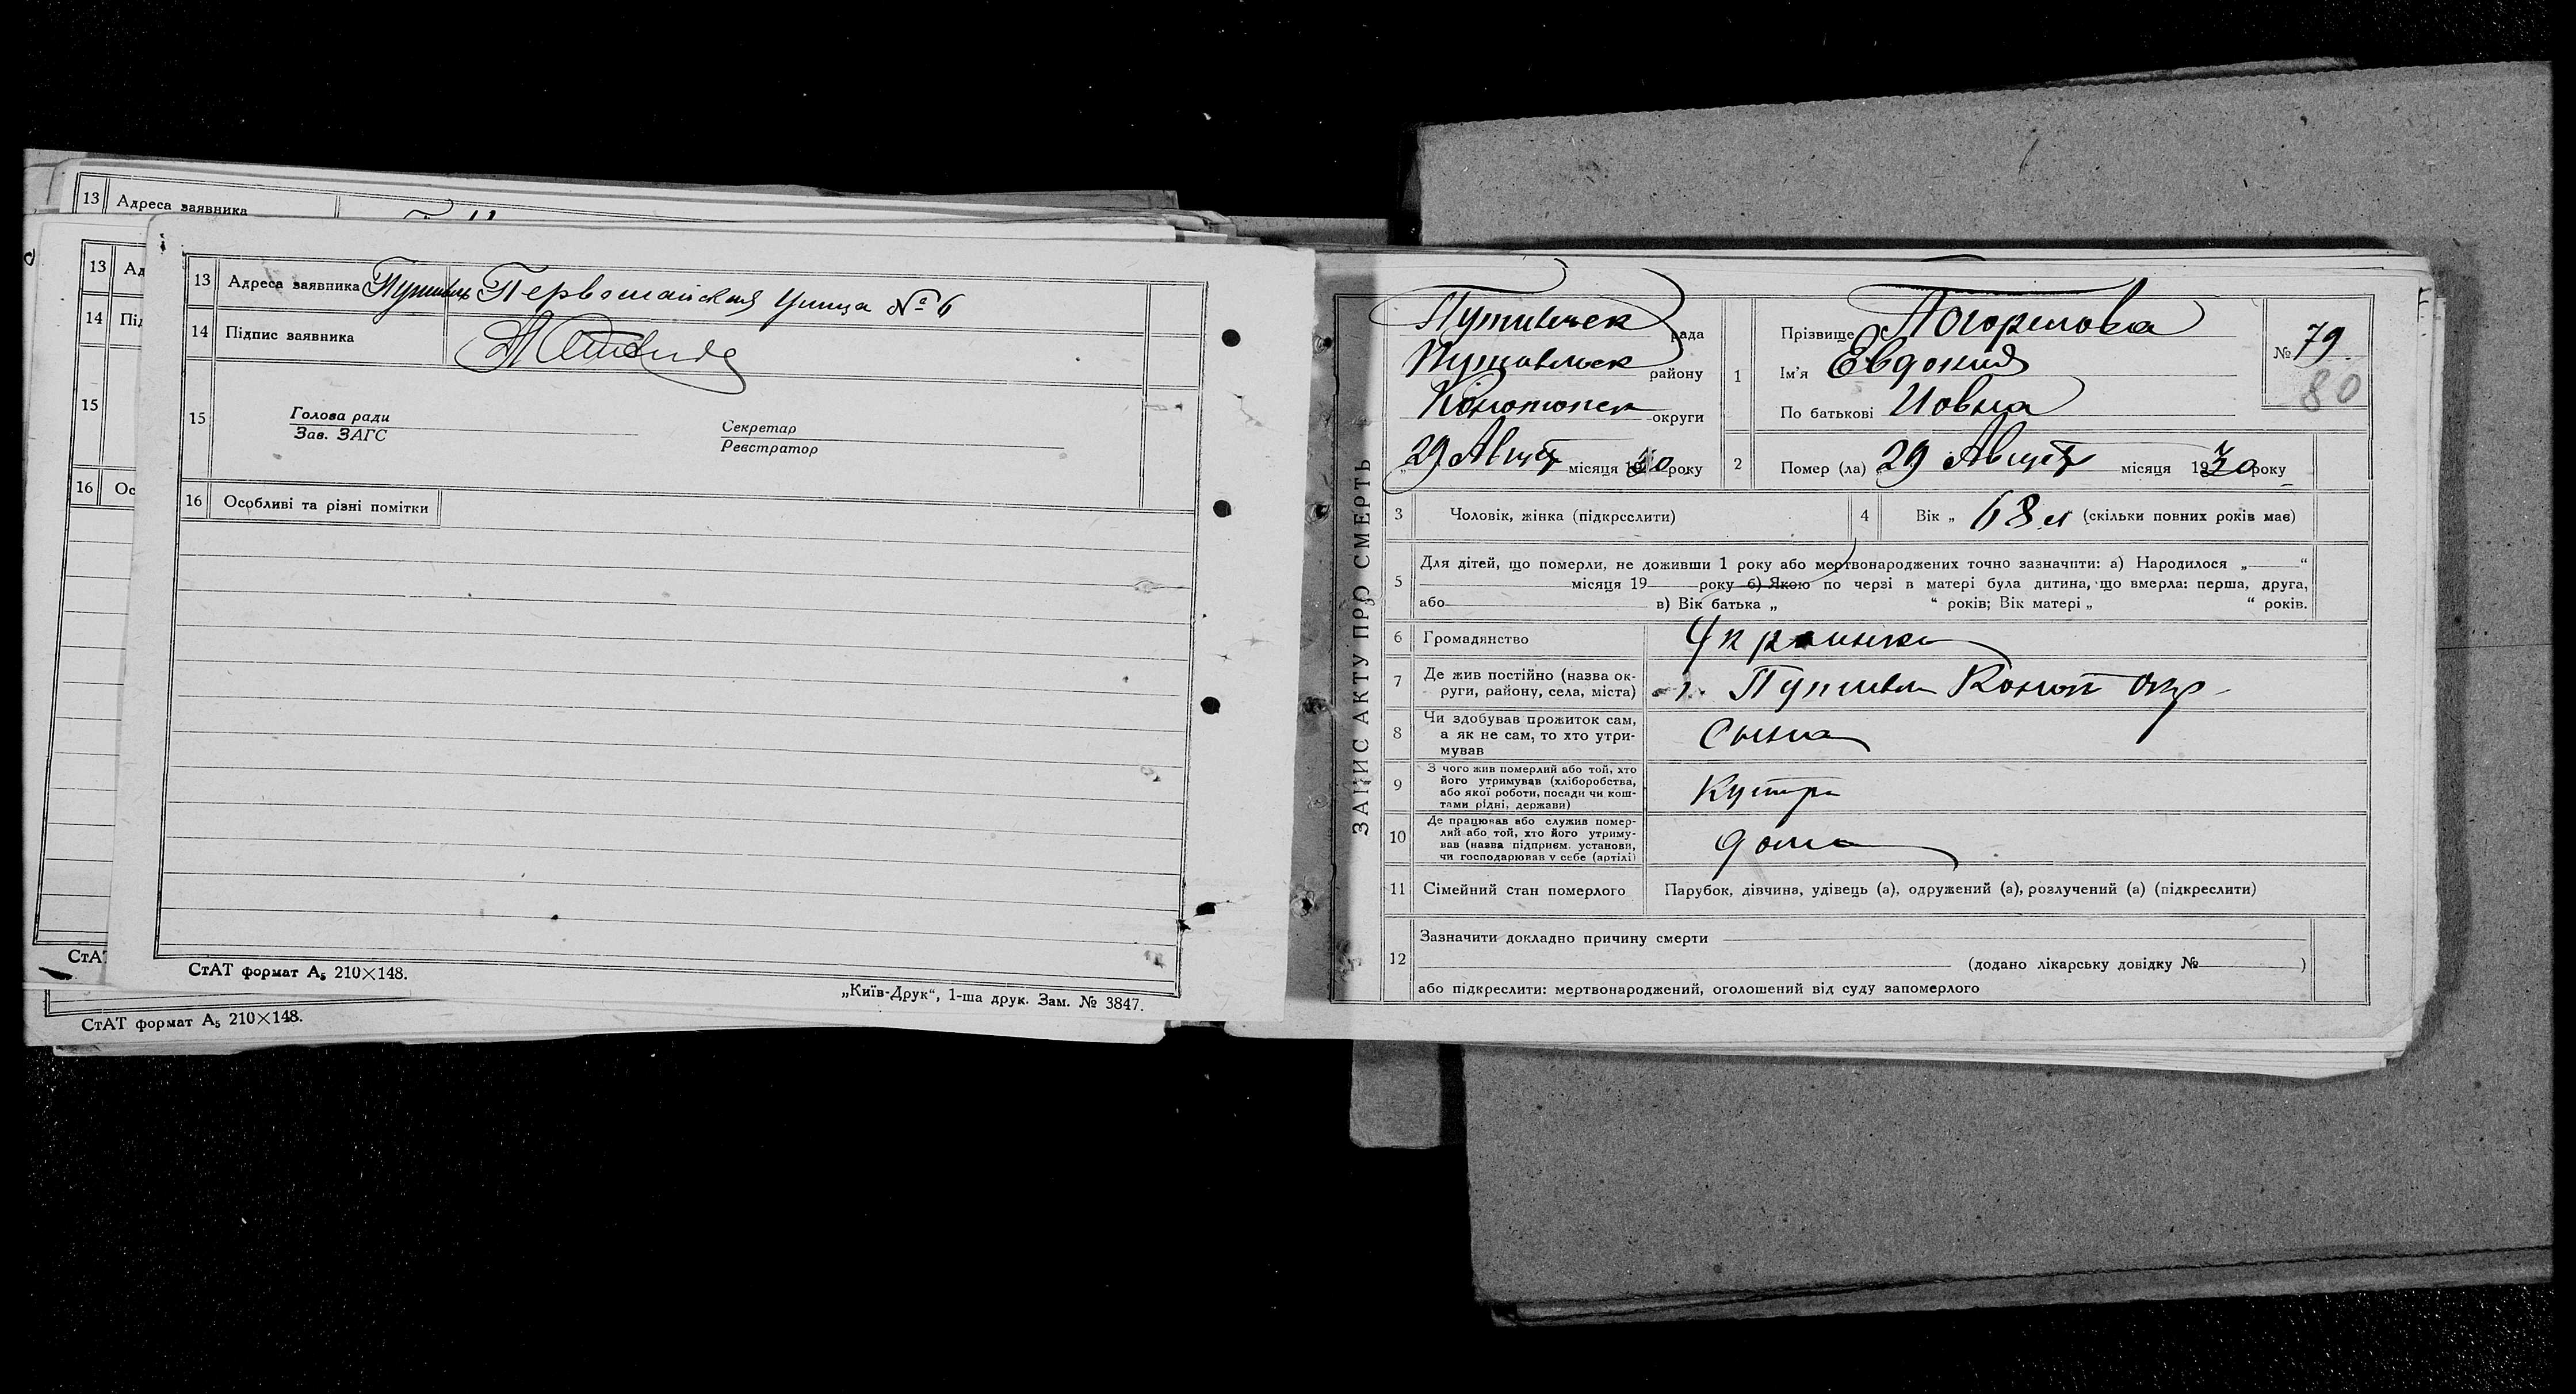 13 Адреса заявника
13 Ад
14 Під
15
16 Ос
СтАТ
СтАТ формат А5 210×148.
13 Адреса заявника Путивль Первомайская улица № 6
14 Підпис заявника
15 Голова ради
Зав. ЗАГС
Секретар
Реєстратор
16 Особливі та різні помітки
СтАТ формат А5 210×148.
„Київ-Друк“, 1-ша друк. Зам. № 3847.
ЗАПИС АКТУ ПРО СМЕРТЬ
Путивльск рада
Путивльск району
Конотопск округи
„29 Август місяця 1930 року
1 Прізвище Погорелова
Ім’я Евдокия
По батькові Иовна
№ 79.
80
2 Помер (ла) „29 Август місяця 1930 року
3 Чоловік, жінка (підкреслити)
4 Вік „ 68 л “ (скільки повних років має)
5 Для дітей, що померли, не доживши 1 року або мертвонароджених точно зазначити: а) Народилося „ “
місяця 19 року б) Якою по черзі в матері була дитина, що вмерла: перша, друга,
або в) Вік батька „ “ років; Вік матері „ “ років.
6 Громадянство Украинка
7 Де жив постійно (назва ок-
руги, району, села, міста) г. Путивль Коноп окр
8 Чи здобував прожиток сам,
а як не сам, то хто утри-
мував Сына
9 З чого жив померлий або той, хто
його утримував (хліборобства,
або якої роботи, посади чи кош-
тами рідні, держави) Кустарь
10 Де працював або служив помер-
лий або той, хто його утриму-
вав (назва підприєм. установи,
чи господарював у себе (артілі) дома
11 Сімейний стан померлого Парубок, дівчина, удівець (а), одружений (а), розлучений (а) (підкреслити)
12 Зазначити докладно причину смерти
(додано лікарську довідку № )
або підкреслити: мертвонароджений, оголошений від суду запомерлого